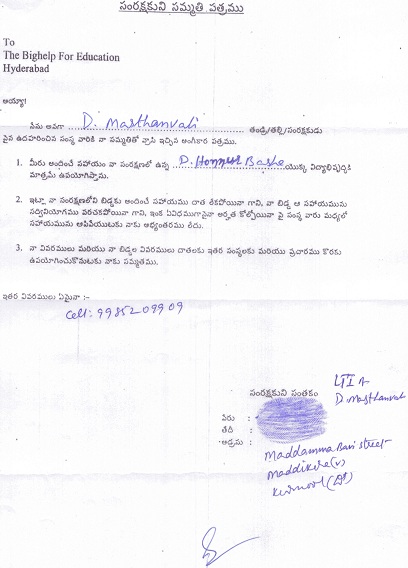 సంరక్షకుని సమ్మతి పత్రము
To
The Bighelp For Education
Hyderabad
అయ్యా!
నేను అనగా D. Masthanvali తండ్రి/తల్లి/సంరక్షకుడు
పైన ఉదహరించిన సంస్థ వారికి నా సమ్మతితో వ్రాసి ఇచ్చిన అంగీకార పత్రము.
1. మీరు అందించే సహాయం నా సంరక్షణలో ఉన్న D. Honnur Basha యొక్క విద్యాభివృద్ధికి
మాత్రమే ఉపయోగిస్తాను.
2. ఇట్లా నా సంరక్షణలోని బిడ్డకు అందించే సహాయము దాత లేకపోయినా గాని, నా బిడ్డ ఆ సహాయమును
సద్వినియోగము పరచకపోయినా గాని, ఇంక ఏవిధముగానైనా అర్హత కోల్పోయినా పై సంస్థ వారు మధ్యలో
సహాయమును ఆపివేయుటకు నాకు అభ్యంతరము లేదు.
3. నా వివరములు మరియు నా బిడ్డల వివరములు దాతలకు ఇతర సంస్థలకు మరియు ప్రచారము కొరకు
ఉపయోగించుకొనుటకు నాకు సమ్మతము.
ఇతర వివరములు ఏమైనా :-
Cell: 9985209909
సంరక్షకుని సంతకం
LTI of
D. Masthanvali
పేరు :
తేది :
అడ్రసు :
Maddamma Bavi street
Maddikera (v)
Kurnool (Dt)